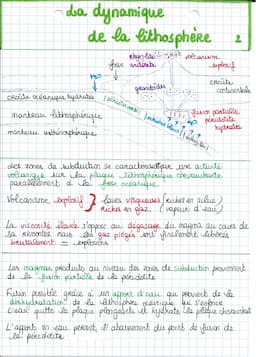 La dynamique
de la lithosphère
2
rhyolite
andésite
volcanisme
explosif
fosse
granitoïdes
croûte
continentale
croûte océanique hydratée
manteau lithosphérique
manteau asthénosphérique
fusion partielle
péridotite
hydratée
Les zones de subduction se caractérisent par une activité
volcanique sur la plaque lithosphérique chevauchante
parallèlement à la fosse océanique.
Volcanisme explosif } laves visqueuses (riches en silice)
riches en gaz (vapeur d'eau)
La viscosité élevée s'oppose au dégazage du magma au cours de
sa remontée mais les gaz piégés sont finalement libérés
brutalement = explosions
Les magmas produits au niveau des zones de subduction proviennent
de la fusion partielle de la péridotite
Fusion possible grâce à un apport d'eau qui provient de la
déshydratation de la lithosphère océanique qui s'enfonce
L'eau quitte la plaque plongeante et hydrate la plaque chevauchante
L'apport en eau permet l'abaissement du point de fusion de
la péridotite.